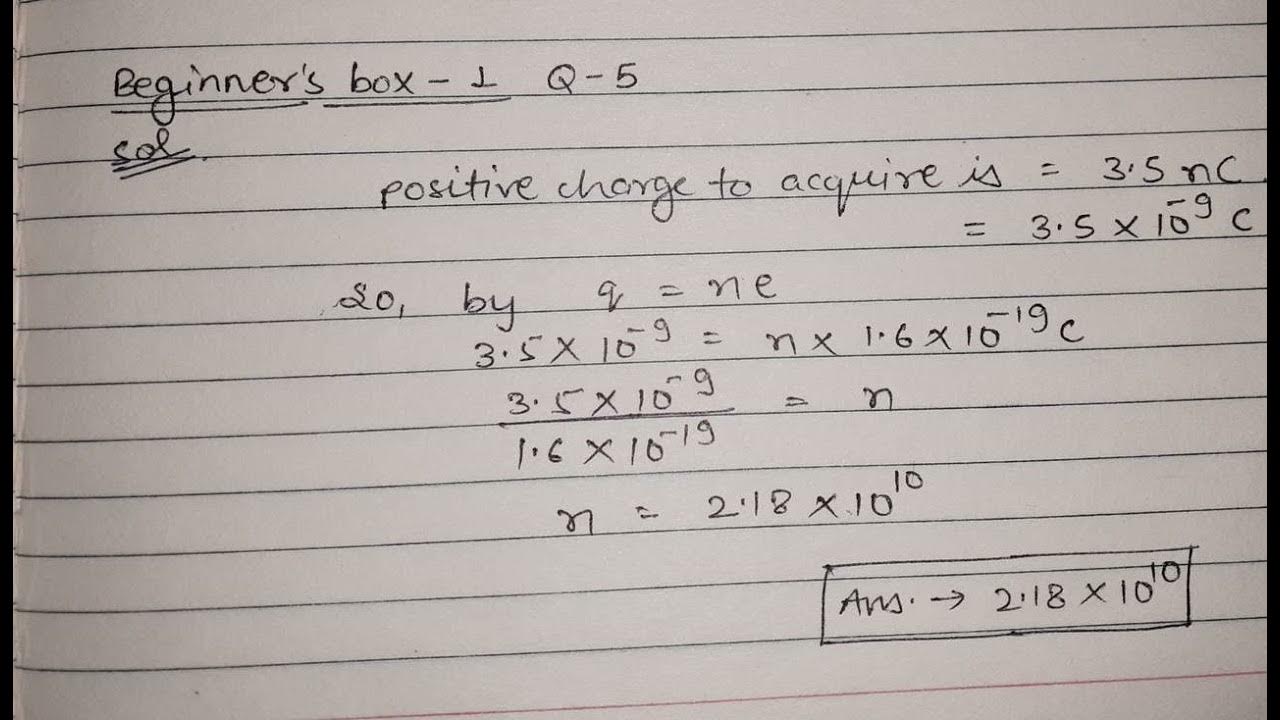 Beginner's box - 1 Q - 5
Sol.
positive charge to acquire is = 3.5 nC
= 3.5 × 10⁻⁹ C
So, by q = ne
3.5 × 10⁻⁹ = n × 1.6 × 10⁻¹⁹ C
3.5 × 10⁻⁹ = n
1.6 × 10⁻¹⁹
n = 2.18 × 10¹⁰
Ans. → 2.18 × 10¹⁰